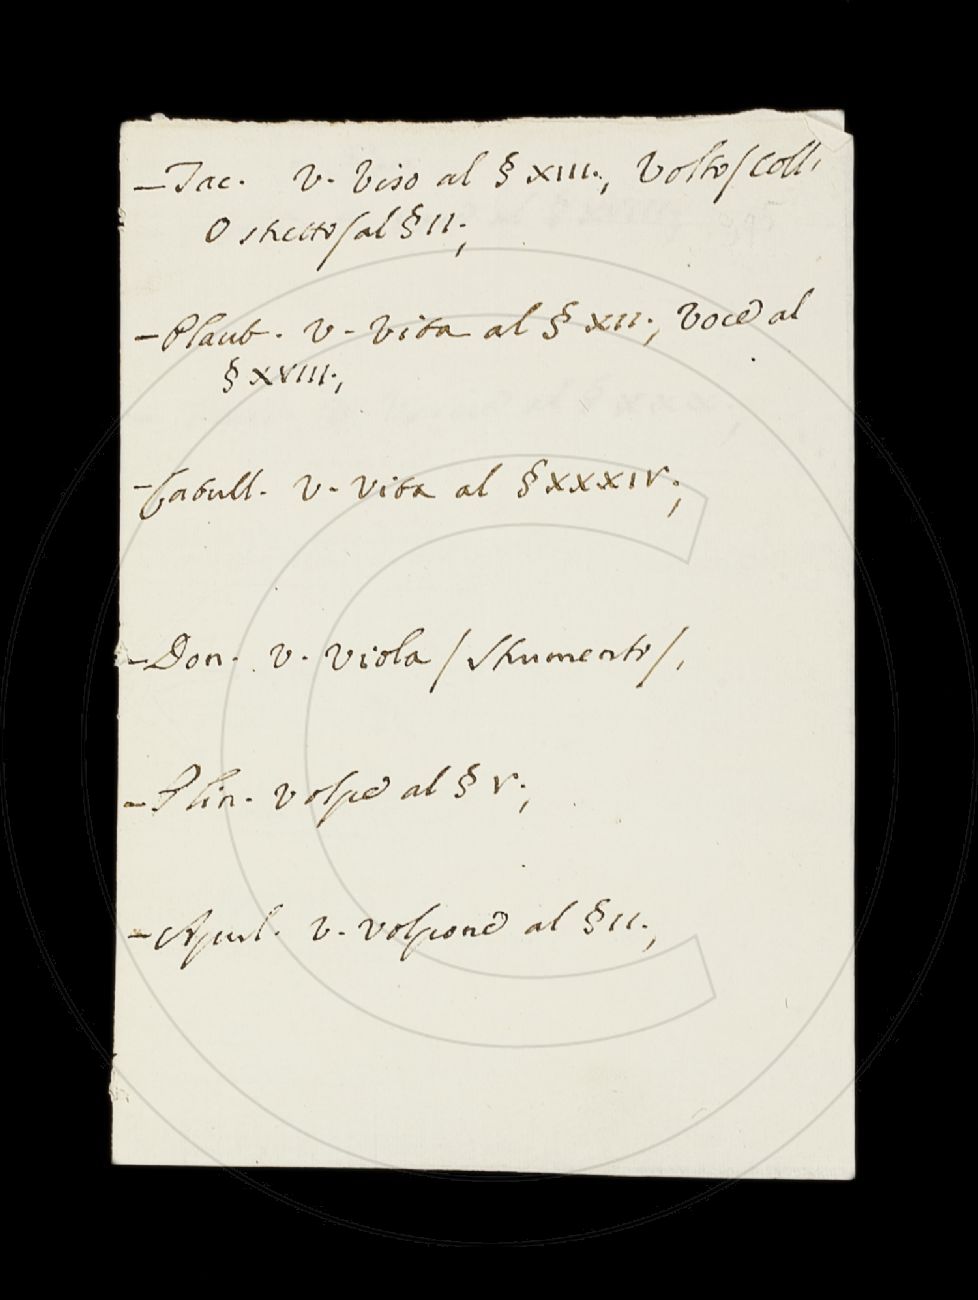 – Tac. v. viso al § XIII., Volto/coll'
O stretto/al § II.,
– Plaut. v. vita al § XII., Voce al
§ XVIII.,
– Catull. v. vita al § XXXIV.,
– Don. v. viola / Strumento/,
– Plin. volpe al § V.,
– Apul. v. volpone al § II.,